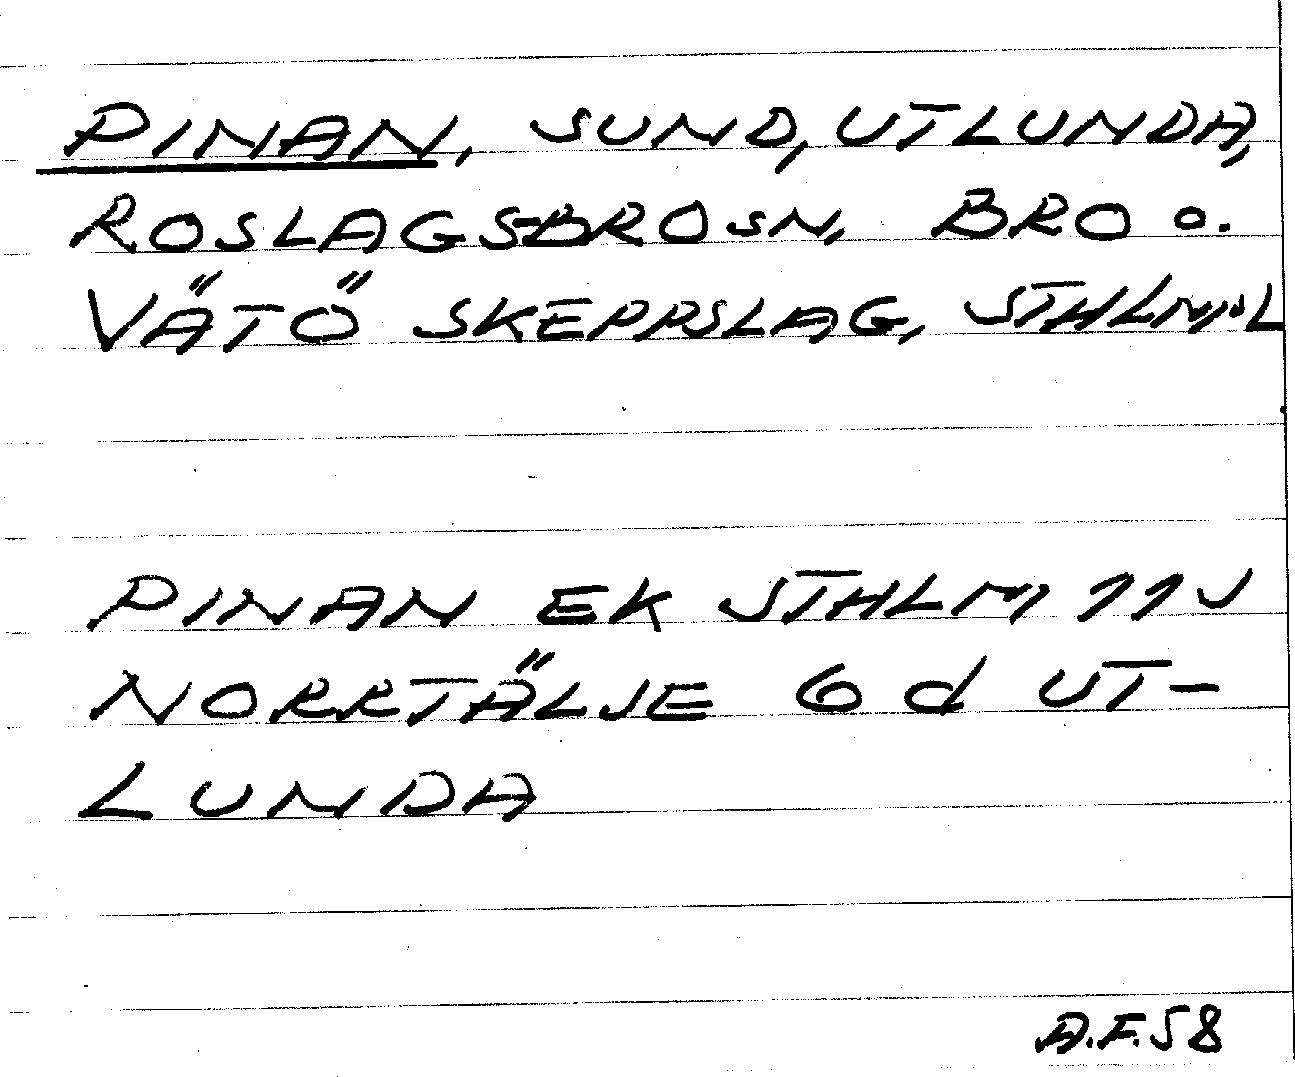 PINAN, SUND, UTLUNDA,
ROSLAGS-BRO SN, BRO o.
VÄTÖ SKEPPSLAG, STHLMS L
PINAN EK STHLM 11J
NORRTÄLJE 6 d UT-
LUNDA
A.F.58